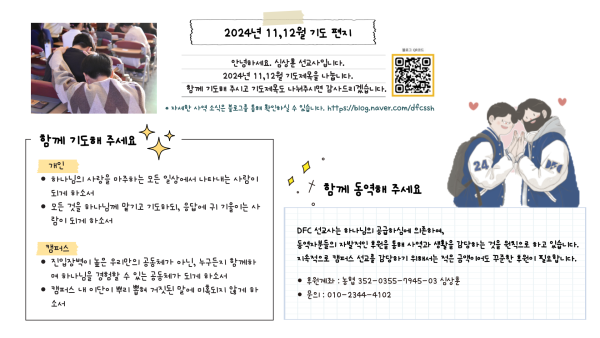 2024년 11,12월 기도 편지
블로그 바로가기
안녕하세요. 심상훈 선교사입니다.
2024년 11,12월 기도제목을 나눕니다.
함께 기도해 주시고 기도제목도 나눠주시면 감사드리겠습니다.
* 자세한 사역 소식은 블로그를 통해 확인하실 수 있습니다. https://blog.naver.com/dfcssh
함께 기도해 주세요
개인
● 하나님의 사랑을 마주하는 모든 일상에서 나타내는 사람이
되게 하소서
● 모든 것을 하나님께 맡기고 기도하되, 응답에 귀 기울이는 사
람이 되게 하소서
캠퍼스
● 진입장벽이 높은 우리만의 공동체가 아닌, 누구든지 함께하
며 하나님을 경험할 수 있는 공동체가 되게 하소서
● 캠퍼스 내 이단이 뿌리 뽑혀 거짓된 말에 미혹되지 않게 하
소서
24
함께 동역해 주세요
DFC 선교사는 하나님의 공급하심에 의존하며,
동역자분들의 자발적인 후원을 통해 사역과 생활을 감당하는 것을 원칙으로 하고 있습니다.
지속적으로 캠퍼스 선교를 감당하기 위해서는 적은 금액이어도 꾸준한 후원이 필요합니다.
● 후원계좌 : 농협 352-0355-7945-03 심상훈
● 문의 : 010-2344-4102